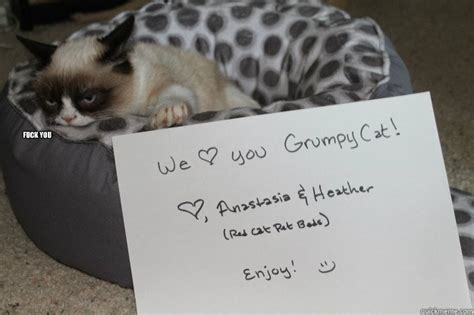 FUCK YOU
We ♡ you Grumpy Cat!
♡, Anastasia & Heather
(Red Cat Pet Beds)
Enjoy! :)
quickmeme.com